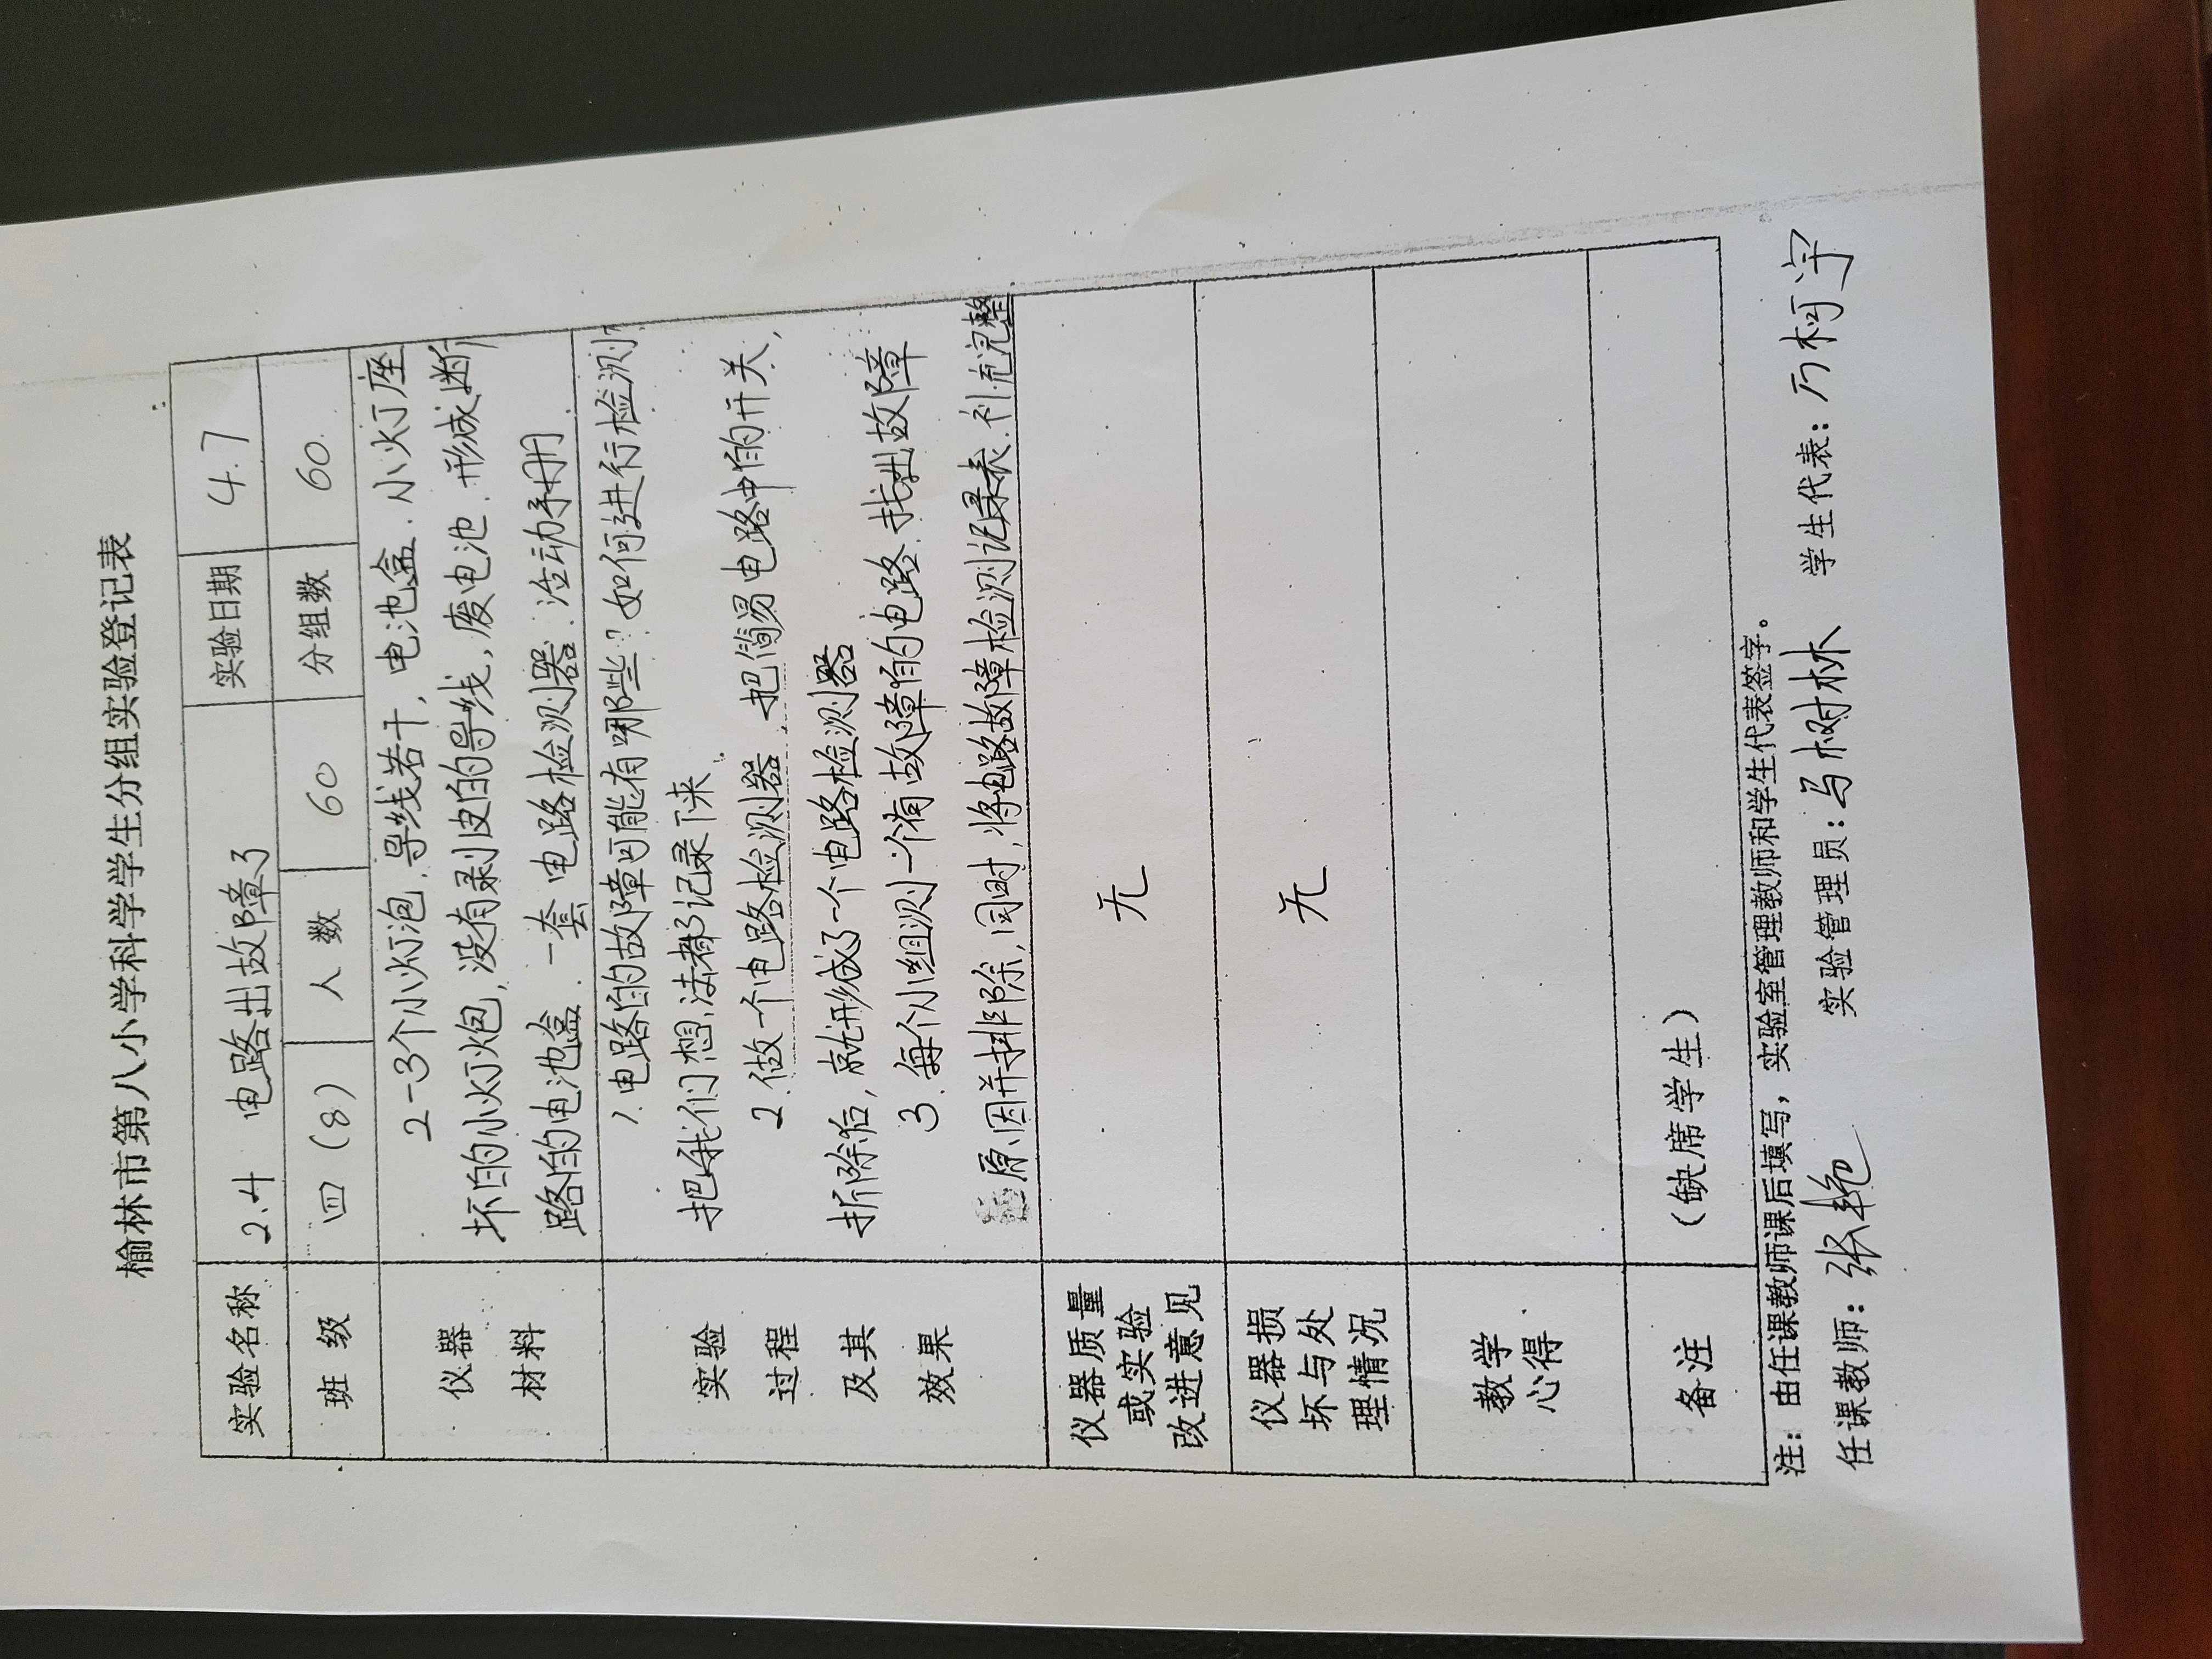 榆林市第八小学科学学生分组实验登记表
实验名称 2.4 电路出故障了 实验日期 4.7
班 级 四(8) 人 数 60 分组数 60.
仪器材料
2-3个小灯泡,导线若干,电池盒.小灯座
坏的小灯炮,没有剥皮的导线,废电池.形成断
路的电池盒.一套电路检测器.活动手册
实验过程及其效果
1.电路的故障可能有哪些?如何进行检测?
把我们想法都记录下来.
2.做一个电路检测器.把简易电路中的开关,
拆除后,就形成了一个电路检测器
3.每个小组测一个有故障的电路.找出故障
原因并排除,同时,将电路故障检测记录表.补充完整
仪器质量或实验改进意见 无
仪器损坏与处理情况 无
教学心得
备注 (缺席学生)
注:由任课教师课后填写,实验室管理教师和学生代表签字。
任课教师:张艳 实验管理员:马树林 学生代表:柯宇